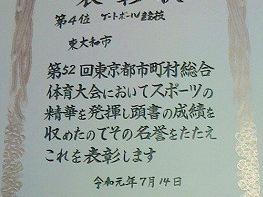 第4位 ゲートボール競技
東大和市
第52回東京都市町村総合
体育大会においてスポーツの
精華を発揮し頭書の成績を
収めたのでその名誉をたたえ
これを表彰します
令和元年7月14日